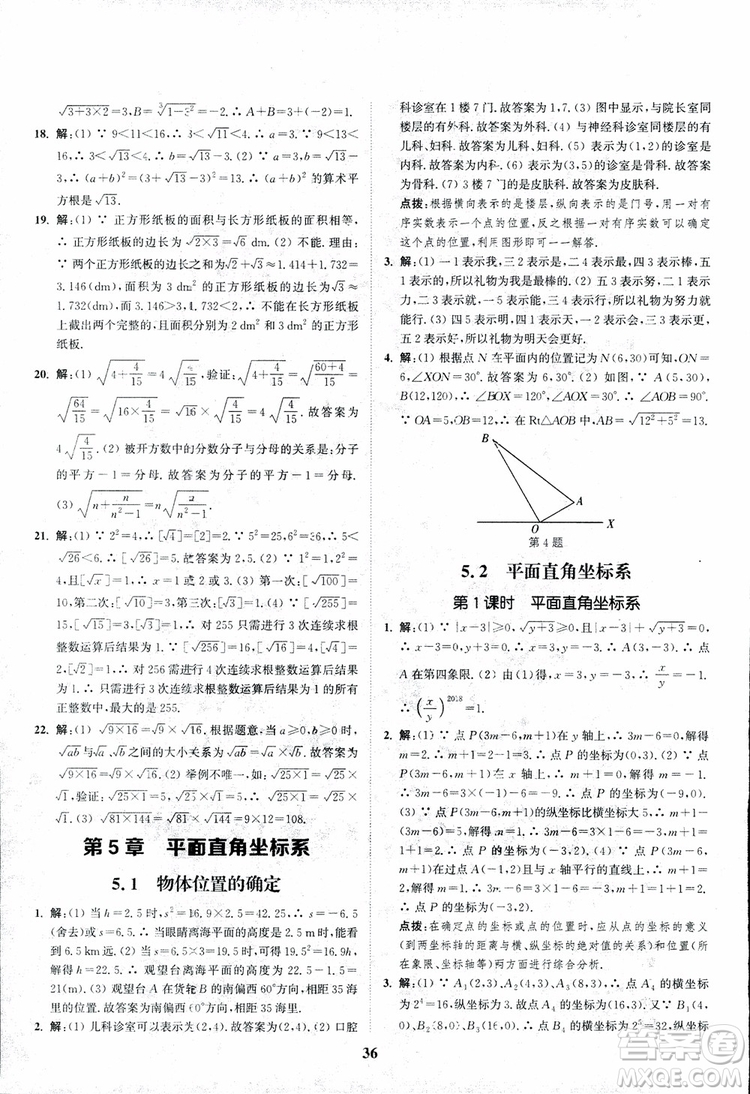 √(3+3×2)=3. ∵ B=∛(1-3²)=-2. ∴ A+B=3+(-2)=1.
18. 解:(1) ∵ 9<11<16,∴ 3<√11<4. (2) ∵ 9<13<
16,∴ 3<√13<
∴ (a+b)²=(3+b)²=13. ∴ (a+b)² 的算术平
方根是√13.
19. 解:(1) ∵ 正方形纸板的面积与长方形纸板的面积相等,
∴ 正方形纸板的边长为√(2×3)=√6 dm. (2) 不能. 理由:
∵ 两个正方形纸板的边长和为√2+√3≈1.414+1.732=
3.146(dm),面积为 3 dm² 的正方形的边长为√3≈
1.732(dm),3.146>3,1.732<2,∴ 不能在长方形纸板
上截出两个完整的,且面积分别为 2 dm² 和 3 dm² 的正方形
纸板.
20. 解:(1) √(4+4/15)=4√(4/15),验证:√(4+4/15)=√((60+4)/15)=
√(64/15)=√(16×4/15)=√16×√(4/15)=4√(4/15). 故答案为
4√(4/15). (2) 被开方数中的分数分子与分母的关系是:分子
的平方-1=分母. 故答案为分子的平方-1=分母.
(3) √(n+n/(n²-1))=n√(n/(n²-1)).
21. 解:(1) ∵ 2²=4,∴ [√4]=[2]=2. ∵ 5²=25,6²=36,∴ 5
<√26<6. ∴ [√26]=[5]=5. 故答案为 2;5. (2) ∵ 1²=1,2²=
4,且[√x]=1,∴ x=1 或 2 或 3. (3) 第一次:[√100]=
10,第二次:[√10]=3,第三次:[√3]=1. (4) ∵ [√255]=
15,[√15]=3,[√3]=1,∴ 对 255 只需进行 3 次连续求根整
数运算后结果为 1. ∵ [√256]=16,[√16]=4,[√4]=
2,[√2]=1,∴ 对 256 只需进行 4 次连续求根整数运算后结
果为 1. ∴ 只需进行 3 次连续求根整数运算后结果为 1 的所有
正整数中,最大的是 255.
22. 解:(1) √(9×16)=√9×√16. 根据题意,当 a≥0,b≥0 时,
√ab与√a×√b之间的大小关系为√ab=√a×√b. 故答案为
√(9×16)=√9×√16. (2) 举例不唯一,如√(81×144)=√81×
√144,验证:√81×√144=9×12=108,√(81×144)=108,∴
√(81×144)=√81×√144=9×12=108.
第 5 章 平面直角坐标系
5.1 物体位置的确定
1. 解:(1) 当 h=2.5 时,s²=16.9×2.5=42.25,∴ s=-6.5
(舍去)或 s=6.5. ∴ 当眼睛离海平面的高度是 2.5 m 时,能看
到 6.5 km 远. (2) 当 s=6.5×3=19.5 时,可得 19.5²=16.9h,
解得 h≈22.5. ∴ 观望台离海平面的高度为 22.5-1.5=
21(m). (3) 观望台 A 在货轮 B 的南偏西 60°方向,相距 35 海
里的位置. 故答案为南偏西 60°方向,相距 35 海里.
2. 解:(1) 儿科诊室可以表示为(2,4). 故答案为(2,4). (2) 口腔
科诊室在 1 楼 7 门. 故答案为 1,7. (3) 图形中显示,与院长室同
楼层的有外科. 故答案为外科. (4) 与神经科诊室同楼层的有
儿科、妇科. 故答案为儿科、妇科. (5) (1,2)表示的诊室是内
科. 故答案为内科. (6) (3,5)表示的诊室为骨科. 故答案为
骨科. (7) 3 楼 7 门的是皮肤科. 故答案为皮肤科.
点拨:根据横向表示的是楼层,纵向表示的是门号,用一对有
序实数表示一个点的位置,反之根据一对有序实数可以确定
这个点的位置,利用图形可以直接得出答案.
3. 解:(1) 一 1 表示我,三 2 表示是,二 4 表示最,三 5 表示棒,五 1
表示的,所以礼物为我是最棒的. (2) 五 3 表示努,二 1 表示
力,二 3 表示就,一 3 表示能,四 5 表示行,所以礼物为努力就
能行. (3) 四 5 表示明,一 1 表示天,五 5 表示会,三 1 表示更,
三 5 表示好,所以礼物为明天会更好.
4. 解:(1) 根据点 N 在平面内的位置记为 N(6,30)可知,ON=
6,∠XON=30°. 故答案为 6;30°. (2) 如图. ∵ A(5,30),
B(12,120),∴ ∠BOX=120°,∠AOX=30°. ∴ ∠AOB=90°.
∵ OA=5,OB=12,∴ 在 Rt△AOB 中,AB=√(12²+5²)=13.
B
A
O
X
第 4 题
5.2 平面直角坐标系
第 1 课时 平面直角坐标系
1. 解:(1) ∵ |x-3|≥0,√(y+3)≥0,|x-3|+√(y+3)=0,∴
x-3=0,y+3=0,解得 x=3,y=-3. ∴ A(3,-3). ∴ 点
A 在第四象限. (2) 由(1)得,x=3,y=-3,∴ x/y=3/-3=-1.
∴ (x/y)²⁰¹⁸=1.
2. 解:(1) ∵ 点 P(3m-6,m+1)在 y 轴上,∴ 3m-6=0,解得
m=2. ∴ m+1=2+1=3. ∴ 点 P 的坐标为(0,3). (2) ∵
点 P(3m-6,m+1)在 x 轴上,∴ m+1=0,解得 m=-1. ∴
3m-6=3×(-1)-6=-9. ∴ 点 P 的坐标为(-9,0).
(3) ∵ 点 P(3m-6,m+1)的纵坐标比横坐标大 5,∴ m+
1-(3m-6)=5,解得 m=1. ∴ 3m-6=3×1-6=-3,m+
1=1+1=2. ∴ 点 P 的坐标为(-3,2). (4) ∵ 点 P(3m-6,
m+1)在过点 A(-1,2)且与 x 轴平行的直线上,∴ m+1=
2,解得 m=1. ∴ 3m-6=3×1-6=-3,m+1=1+1=2.
∴ 点 P 的坐标为(-3,2).
点拨:在确定点的坐标或点的位置时,应从点的坐标的意义
(到两坐标轴的距离与横、纵坐标的绝对值的关系)和位置(所
在的象限、坐标轴等)两方面进行综合分析.
3. 解:(1) ∵ A₁(2,4),A₂(4,4),A₃(8,4),∴ A₄ 的横坐标为
2⁴=16,纵坐标为 4. ∴ A₄(16,4). 又 ∵ B₁(2,
0),B₂(
36
答案圈